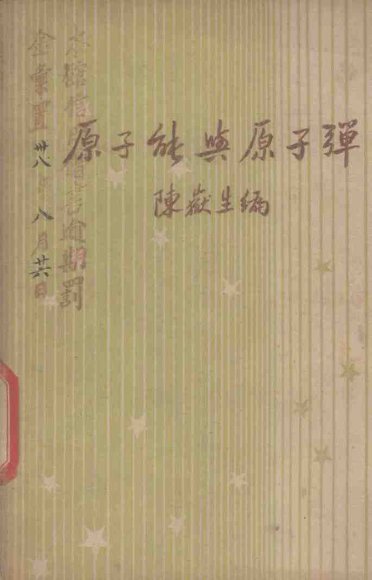 原子能與原子彈
陳嶽生編
逾期罰
金彙置卅八年八月廿六日